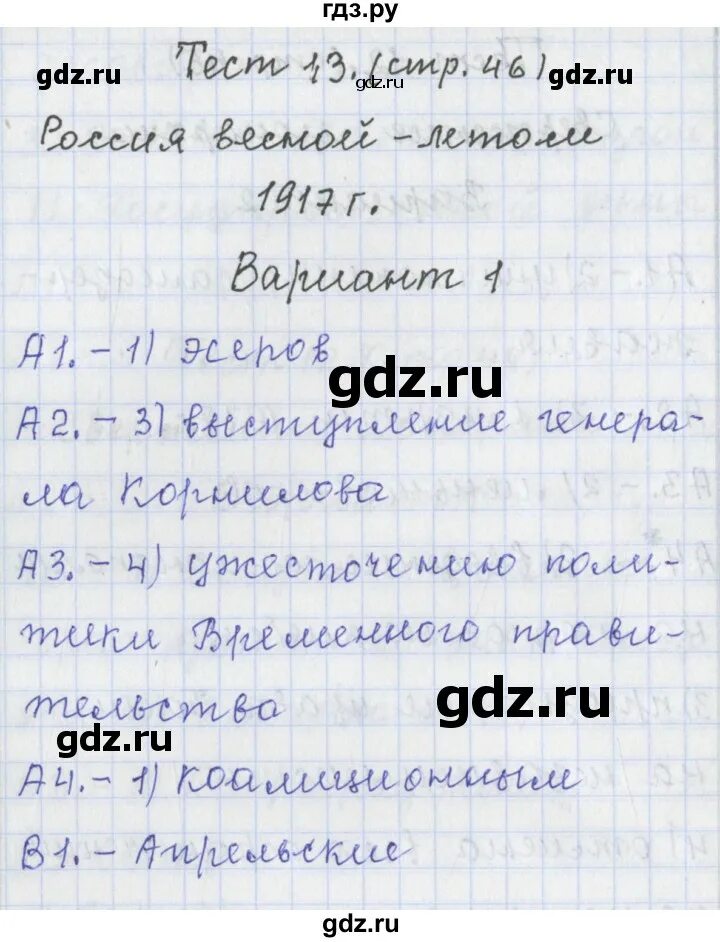 гдз.ру
Тест 13. (стр. 46)
gdz.ru
gdz.ru
gdz.ru
Россия весной - летом
1917 г.
Вариант 1
А1. - 1) эсеров
gdz.ru
А2. - 3) выступление генера-
ла Корнилова
А3. - 4) ужесточению поли-
тики Временного прави-
gdz.ru
тельства
gdz.ru
А4. - 1) коалиционным
В1. - Апрельские
gdz.ru